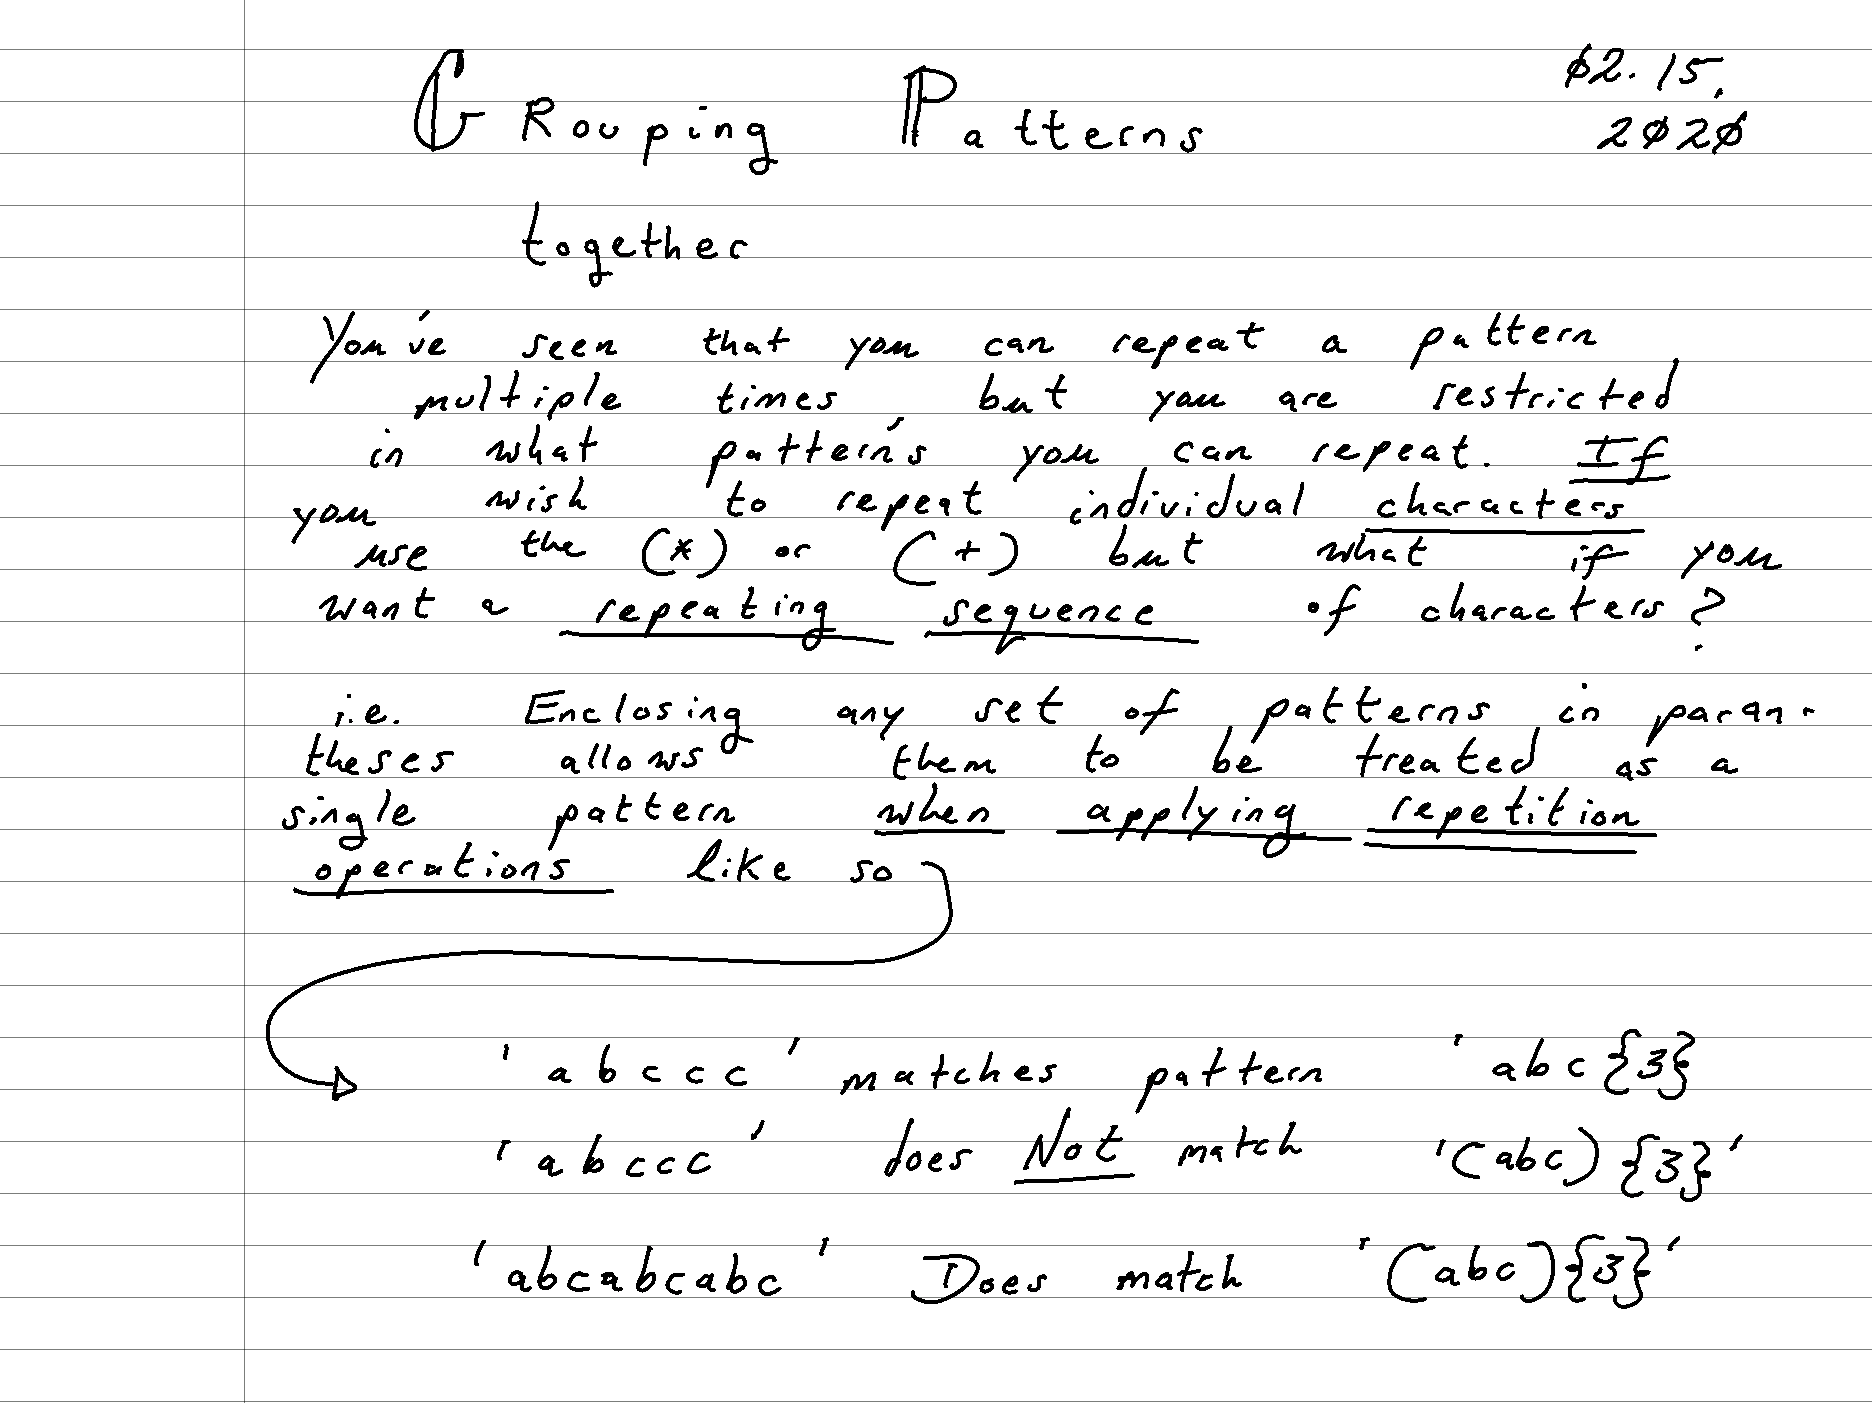 GRouping Patterns
02.15,
2020
together
You've seen that you can repeat a pattern
multiple times, but you are restricted
in what pattern's you can repeat. If
you wish to repeat individual characters
use the (*) or (+) but what if you
want a repeating sequence of characters?
i.e. Enclosing any set of patterns in paran-
theses allows them to be treated as a
single pattern when applying repetition
operations like so
'abccc' matches pattern 'abc{3}
'abccc' does Not match '(abc){3}'
'abcabcabc' Does match '(abc){3}'